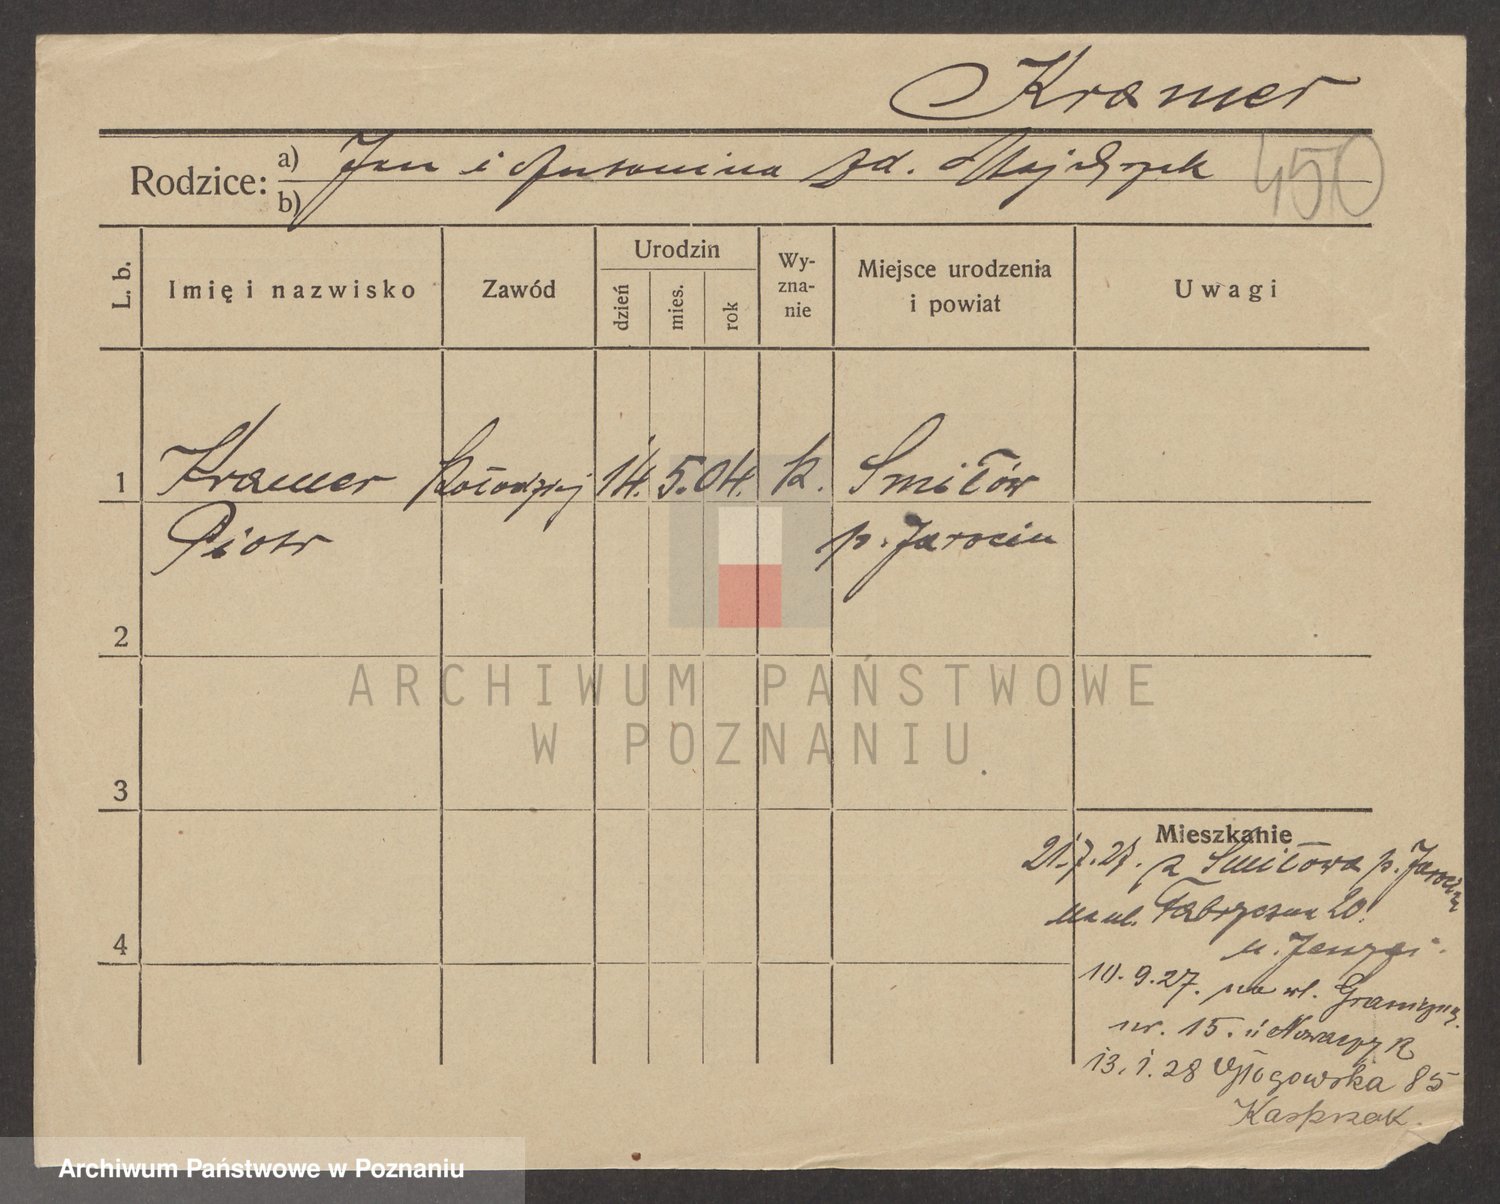 Kramer
Rodzice: a) Jan i Antonina zd. Majchrzak
b)
450
L. b.
Imię i nazwisko
Zawód
Urodzin
dzień
mies.
rok
Wy-
zna-
nie
Miejsce urodzenia
i powiat
Uwagi
1 Kramer Kołodziej 14. 5. 04. k. Smiłów
Piotr p. Jarocin
2
3
4
Mieszkanie
21.7.27. z Smiłowa p. Jarocin
na ul. Fabryczna 20.
u.
10.9.27. na ul. Graniczną
nr. 15. u Nowaczyk
13.1.28 Głogowska 85
Kasprzak.
ARCHIWUM PAŃSTWOWE
W POZNANIU
Archiwum Państwowe w Poznaniu